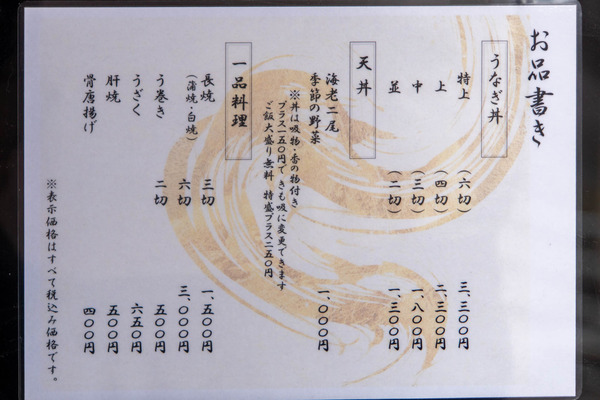 お品書き
うなぎ丼
特上 (六切) 三、三〇〇円
上 (四切) 二、三〇〇円
中 (三切) 一、八〇〇円
並 (二切) 一、三〇〇円
天丼
海老二尾
季節の野菜 一、〇〇〇円
※丼は吸物・香の物付き
プラス一五〇円できも吸に変更できます
ご飯大盛り無料 特盛プラス二五〇円
一品料理
長焼 三切 一、五〇〇円
(蒲焼・白焼) 六切 三、〇〇〇円
う巻き 二切 五〇〇円
うざく 六五〇円
肝焼 五〇〇円
骨唐揚げ 四〇〇円
※表示価格はすべて税込み価格です。